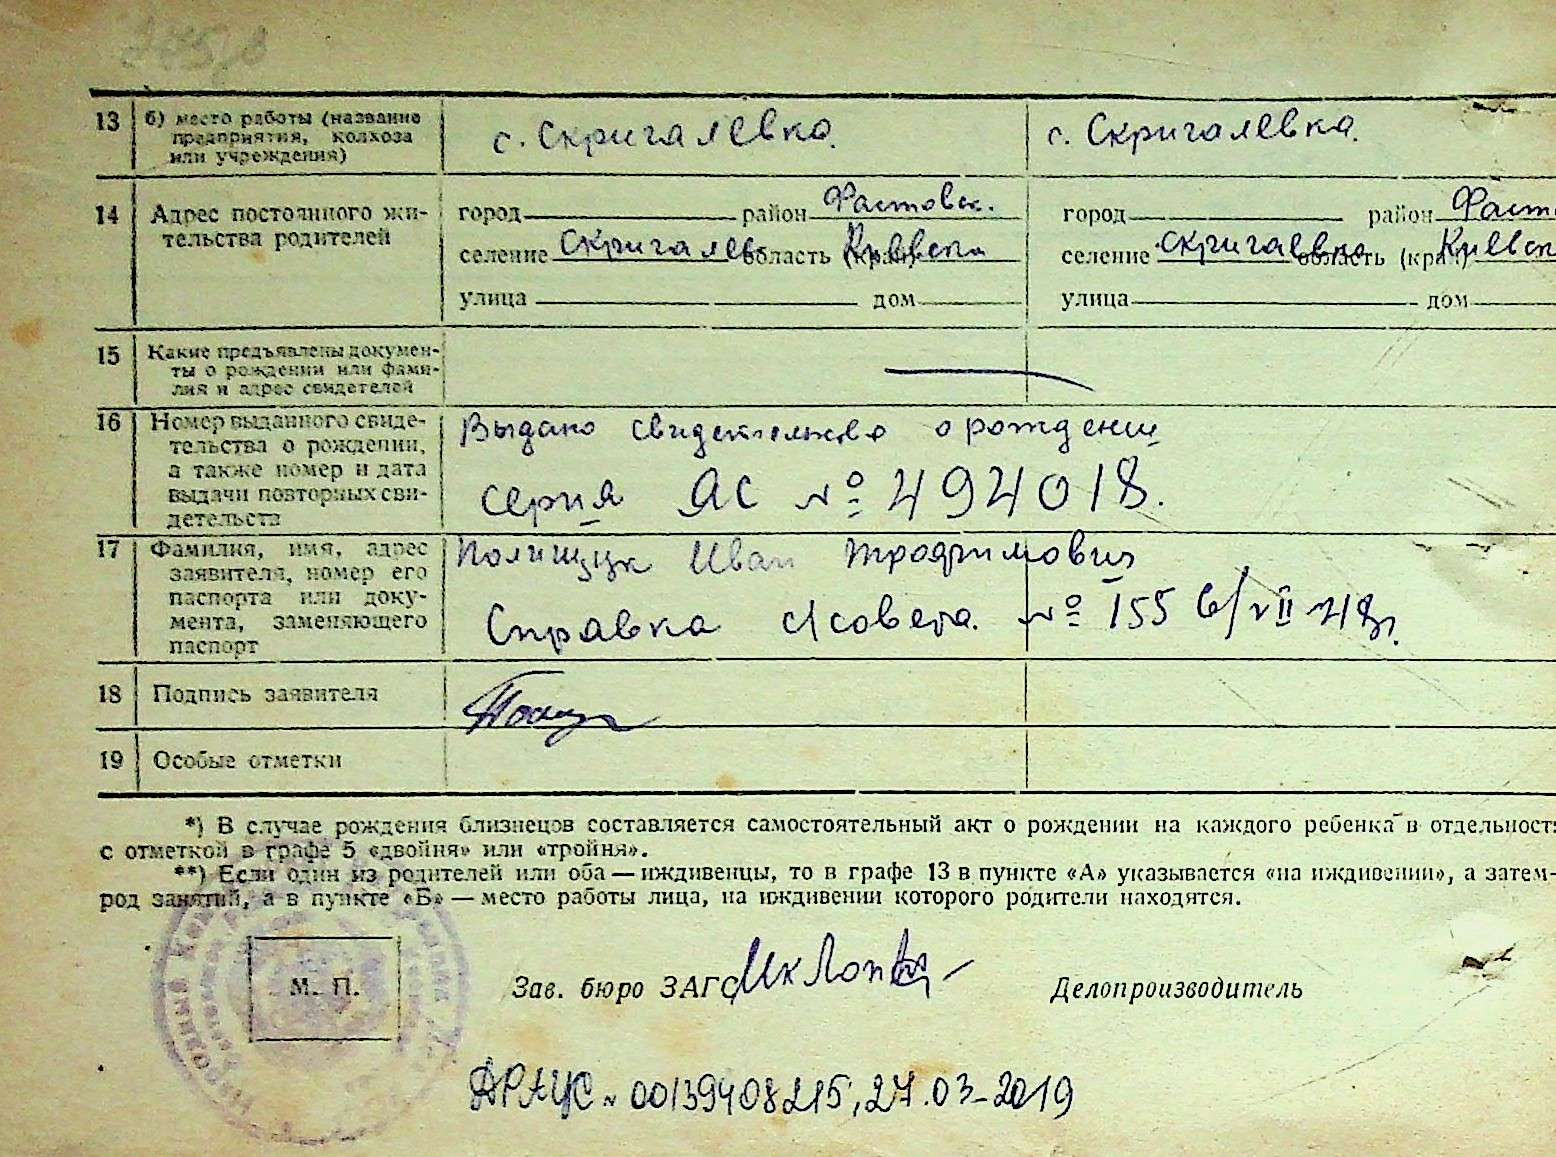 13 б) место работы (название предприятия, колхоза или учреждения) с. Скригалевка. с. Скригалевка.
14 Адрес постоянного жи-
тельства родителей
город район Фастовск. город район Фаст
селение Скригалев область (край) Киевска селение Скригаевка область (край) Киевск
улица дом улица дом
15 Какие предъявлены докумен-
ты о рождении или фами-
лия и адрес свидетелей
16 Номер выданного свиде-
тельства о рождении,
а также номер и дата
выдачи повторных сви-
детельств
Выдано свидетельство о рождении
серия ЯС № 494018.
17 Фамилия, имя, адрес
заявителя, номер его
паспорта или доку-
мента, заменяющего
паспорт
Полищук Иван Трофимович
Справка с/совета. № 155 6/VII 48г.
18 Подпись заявителя
19 Особые отметки
*) В случае рождения близнецов составляется самостоятельный акт о рождении на каждого ребенка в отдельност
с отметкой в графе 5 «двойня» или «тройня».
**) Если один из родителей или оба — иждивенцы, то в графе 13 в пункте «А» указывается «на иждивении», а затем-
род занятий, а в пункте «Б» — место работы лица, на иждивении которого родители находятся.
М. П.
Зав. бюро ЗАГС Делопроизводитель
ДРАЦС № 00139408215, 27.03-2019